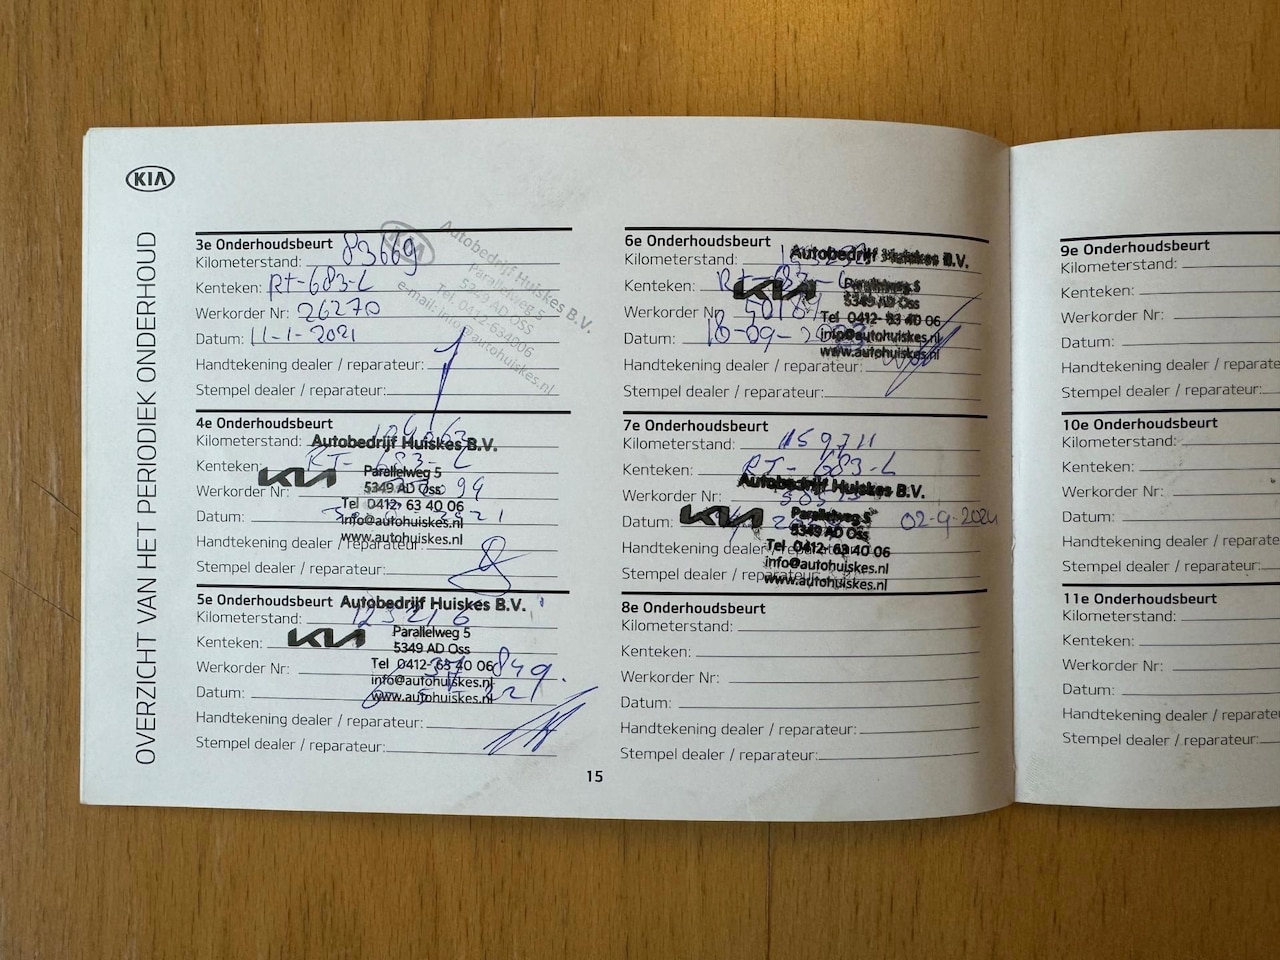 KIA
OVERZICHT VAN HET PERIODIEK ONDERHOUD
3e Onderhoudsbeurt
Kilometerstand: 83669
Kenteken: RT-683-L
Werkorder Nr: 26270
Datum: 11-1-2021
Handtekening dealer / reparateur:
Stempel dealer / reparateur:
KIA
Autobedrijf Huiskes B.V.
Parallelweg 5
AD OSS
Tel. 0412 634006
e-mail: info@autohuiskes.nl
4e Onderhoudsbeurt
Kilometerstand:
Kenteken: RT-683-L
Werkorder Nr:
Datum:
Handtekening dealer / reparateur:
Stempel dealer / reparateur:
Autobedrijf Huiskes B.V.
KIA
Parallelweg 5
5349 AD Oss
Tel 0412- 63 40 06
info@autohuiskes.nl
www.autohuiskes.nl
5e Onderhoudsbeurt
Kilometerstand:
Kenteken:
Werkorder Nr:
Datum:
Handtekening dealer / reparateur:
Stempel dealer / reparateur:
Autobedrijf Huiskes B.V.
KIA
Parallelweg 5
5349 AD Oss
Tel 0412- 63 40 06
info@autohuiskes.nl
www.autohuiskes.nl
15
6e Onderhoudsbeurt
Kilometerstand:
Kenteken:
Werkorder Nr:
Datum:
Handtekening dealer / reparateur:
Stempel dealer / reparateur:
Autobedrijf Huiskes B.V.
KIA
Parallelweg 5
5349 AD Oss
Tel 0412- 63 40 06
info@autohuiskes.nl
www.autohuiskes.nl
7e Onderhoudsbeurt
Kilometerstand: 159711
Kenteken: RT-683-L
Werkorder Nr:
Datum: 02-9-2024
Handtekening dealer / reparateur:
Stempel dealer / reparateur:
Autobedrijf Huiskes B.V.
KIA
Parallelweg 5
5349 AD Oss
Tel 0412- 63 40 06
info@autohuiskes.nl
www.autohuiskes.nl
8e Onderhoudsbeurt
Kilometerstand:
Kenteken:
Werkorder Nr:
Datum:
Handtekening dealer / reparateur:
Stempel dealer / reparateur:
9e Onderhoudsbeurt
Kilometerstand:
Kenteken:
Werkorder Nr:
Datum:
Handtekening dealer / reparateur:
Stempel dealer / reparateur:
10e Onderhoudsbeurt
Kilometerstand:
Kenteken:
Werkorder Nr:
Datum:
Handtekening dealer / reparateur:
Stempel dealer / reparateur:
11e Onderhoudsbeurt
Kilometerstand:
Kenteken:
Werkorder Nr:
Datum:
Handtekening dealer / reparateur:
Stempel dealer / reparateur: